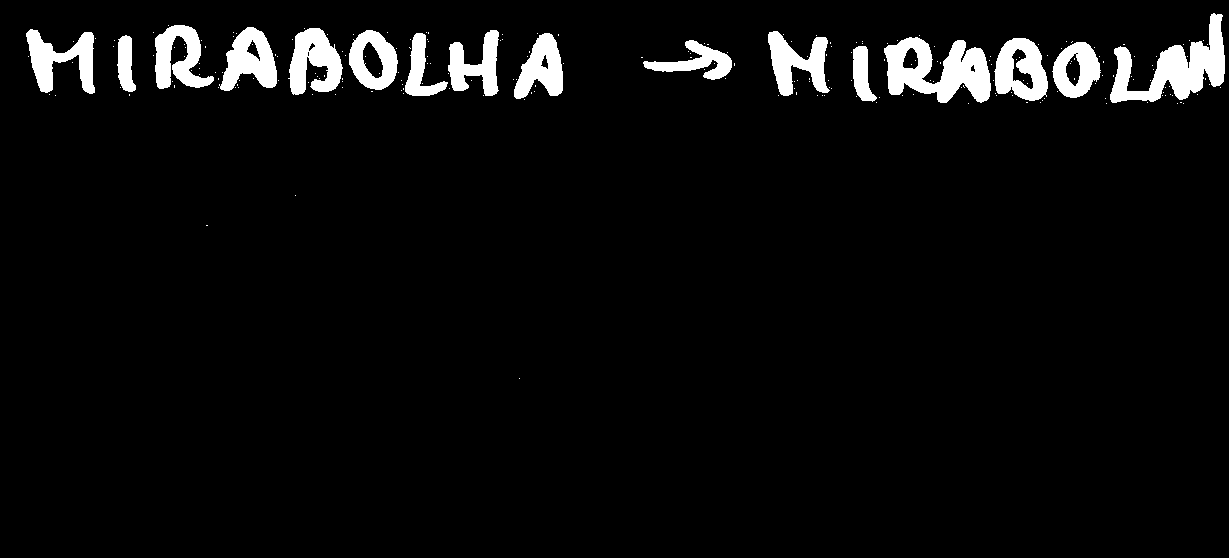 MIRABOLHA → MIRABOLAN